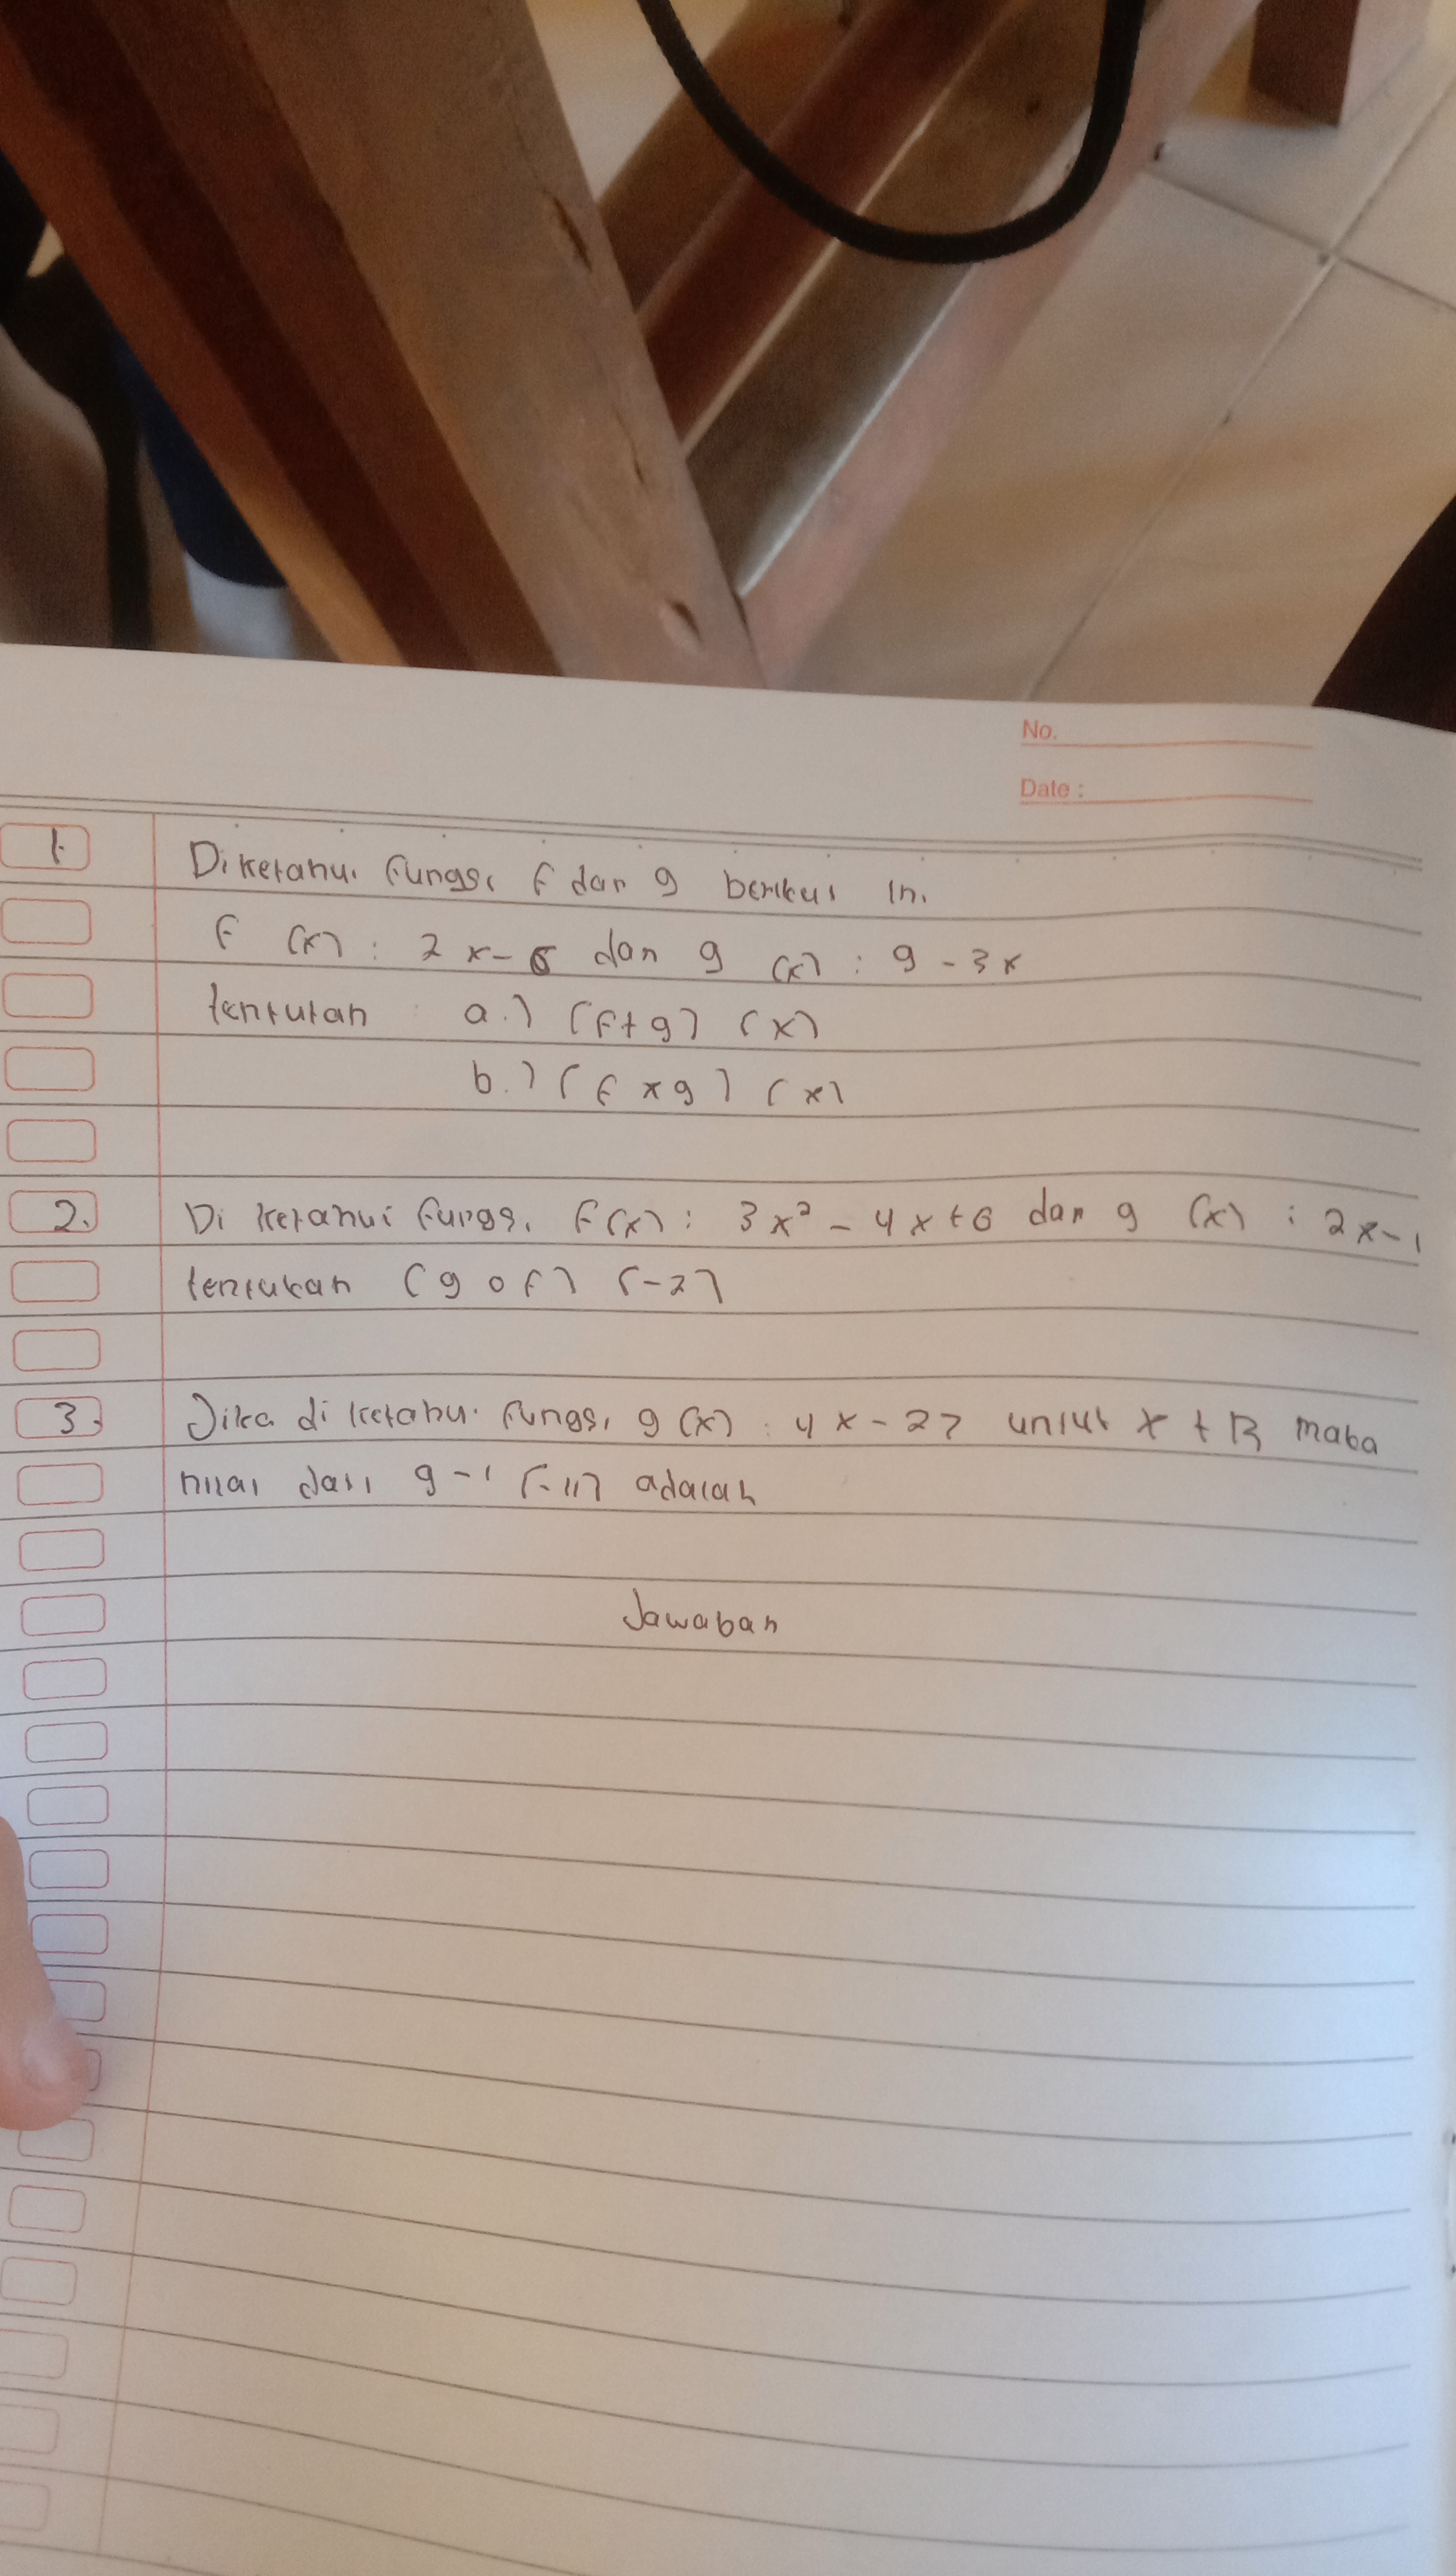 No.
Date :
1. Diketahui fungsi f dan g berikut ini
f (x) : 2x-6 dan g (x) : 9-3x
tentukan a.) (f+g) (x)
b.) (f x g) (x)
2. Di ketahui fungsi f(x) : 3x² - 4x+6 dan g (x) : 2x-1
tentukan (g o f) (-2)
3. Jika di ketahui fungsi g (x) : 4x-27 untuk x + R maka
nilai dari g-1 (-11) adalah
Jawaban